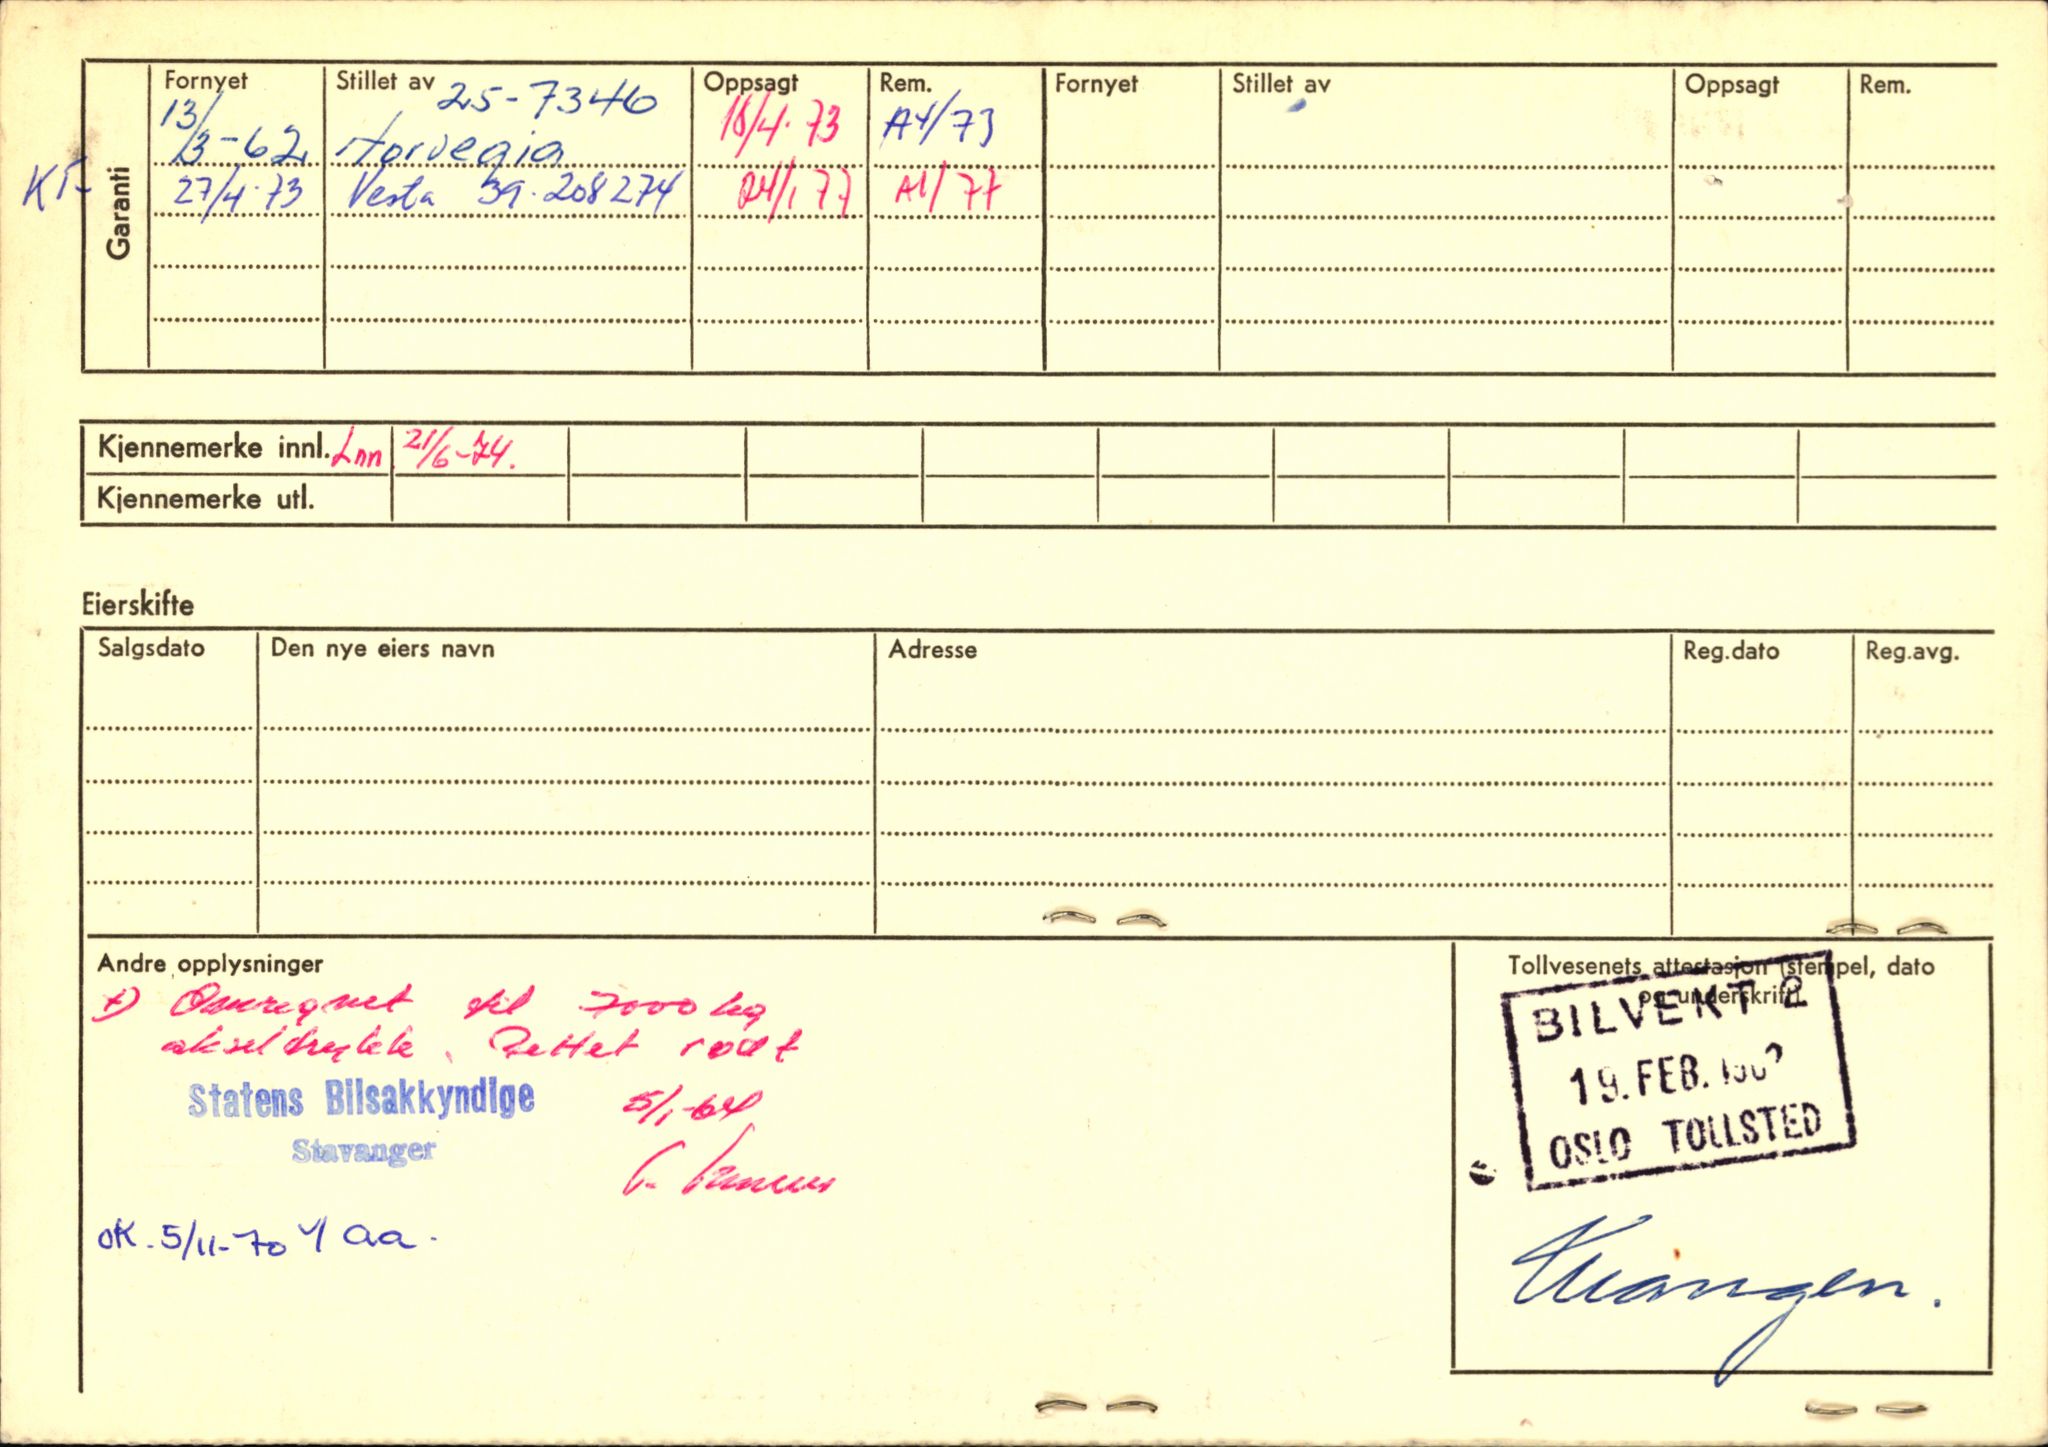 Garanti
Fornyet Stillet av Oppsagt Rem. Fornyet Stillet av Oppsagt Rem.
25-7346
13/3-62 Norvegia 18/4.73 A4/73
KF- 27/4.73 Vesta 39.208274 24/1 77 A1/77
Kjennemerke innl. Inn 21/6-74.
Kjennemerke utl.
Eierskifte
Salgsdato Den nye eiers navn Adresse Reg.dato Reg.avg.
Andre opplysninger
1) Omregnet til 7000 kg
akseltrykk. Rettet rødt
Statens Bilsakkyndige 5/1-64
Stavanger
OK. 5/11-70 aa.
Tollvesenets attestasjon (stempel, dato
og underskrift)
BILVEKT 2
19. FEB.
OSLO TOLLSTED